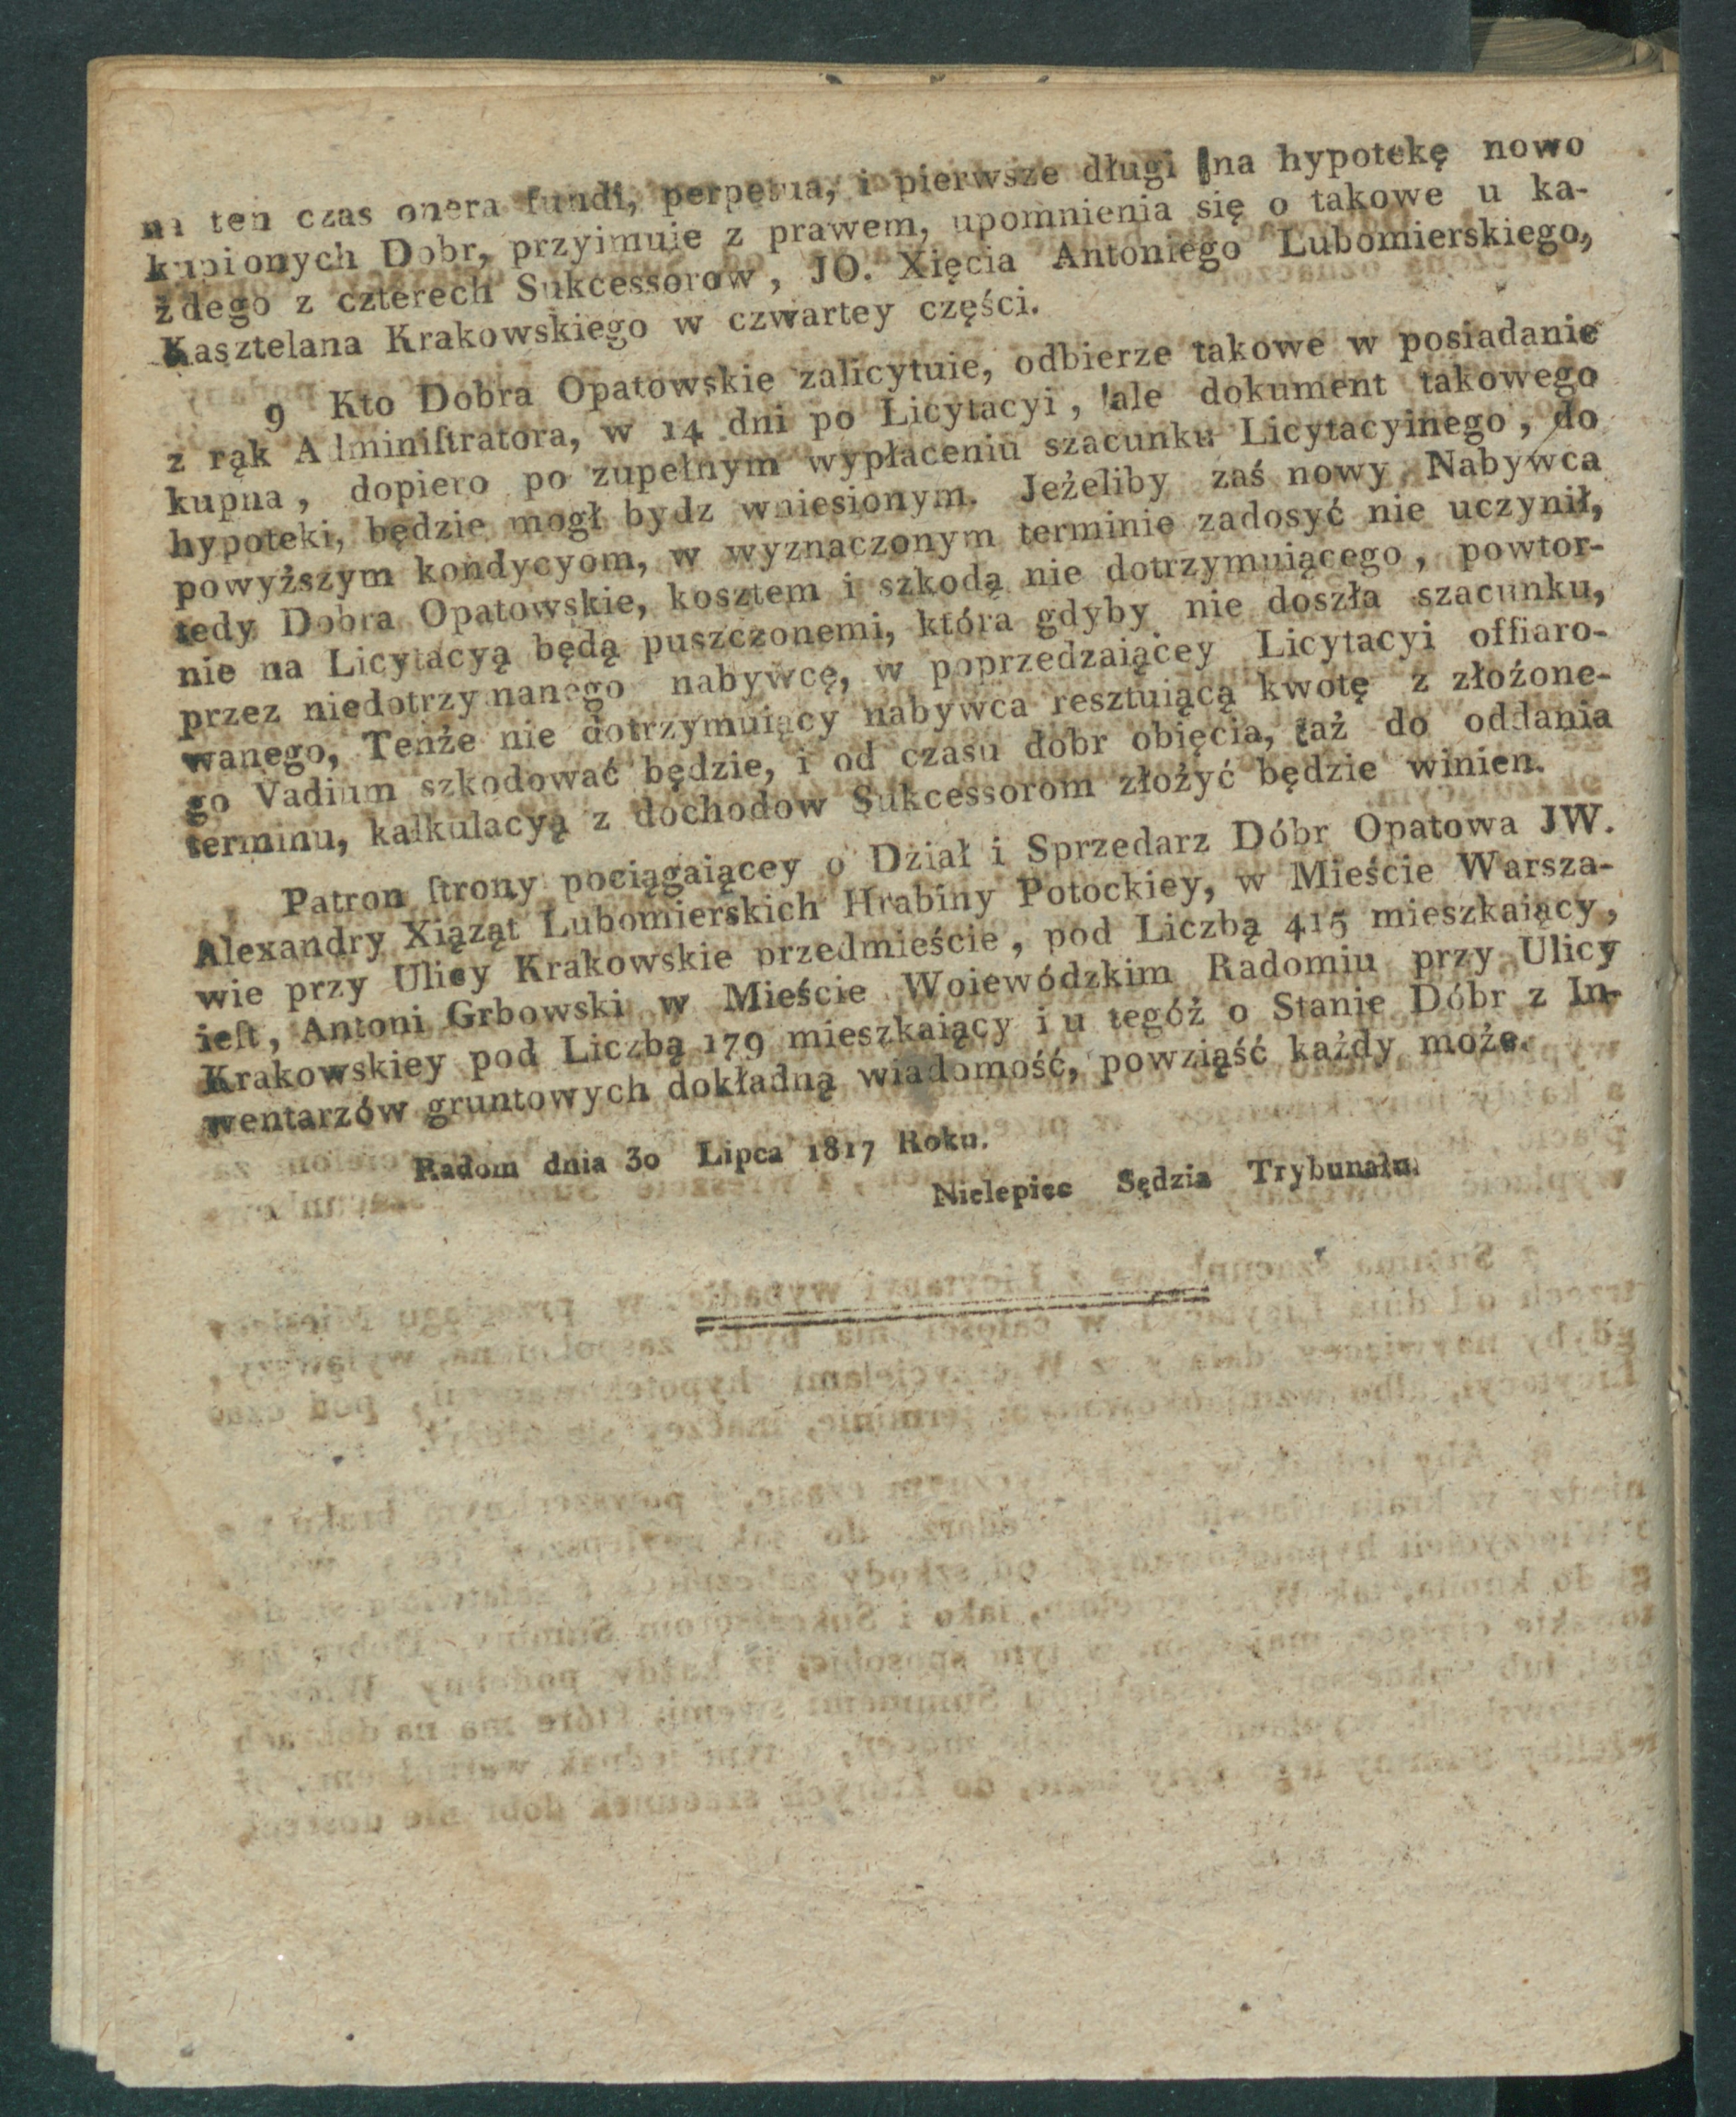 na ten czas onera fundi, perpetua, i pierwsze długi na hypotekę nowo
kupionych Dobr, przyimuie z prawem, upomnienia się o takowe u ka-
żdego z czterech Sukcessorow, JO. Xięcia Antoniego Lubomierskiego,
Kasztelana Krakowskiego w czwartey części.
9 Kto Dobra Opatowskie zalicytuie, odbierze takowe w posiadanie
z rąk Adminiſtratora, w 14 dni po Licytacyi, ale dokument takowego
kupna, dopiero po zupełnym wypłaceniu szacunku Licytacyinego, do
hypoteki, będzie mogł bydz wniesionym. Jeżeliby zaś nowy Nabywca
powyższym kondycyom, w wyznaczonym terminie zadosyć nie uczynił,
tedy Dobra Opatowskie, kosztem i szkodą nie dotrzymuiącego, powtor-
nie na Licytacyą będą puszczonemi, która gdyby nie doszła szacunku,
przez niedotrzymanego nabywcę, w poprzedzaiącey Licytacyi offiaro-
wanego, Tenże nie dotrzymuiący nabywca resztuiącą kwotę z złożone-
go Vadium szkodować będzie, i od czasu dobr obięcia, aż do oddania
terminu, kalkulacyą z dochodow Sukcessorom złożyć będzie winien.
Patron ſtrony pociągaiącey o Dział i Sprzedarz Dóbr Opatowa JW.
Alexandry Xiąząt Lubomierskich Hrabiny Potockiey, w Mieście Warsza-
wie przy Ulicy Krakowskie przedmieście, pod Liczbą 415 mieszkaiący,
ieſt, Antoni Grbowski w Mieście Woiewódzkim Radomiu przy Ulicy
Krakowskiey pod Liczbą 179 mieszkaiący i u tegóż o Stanie Dóbr z In-
wentarzów gruntowych dokładną wiadomość, powziąść każdy może.
Radom dnia 30 Lipca 1817 Roku.
Nielepiec Sędzia Trybunału.